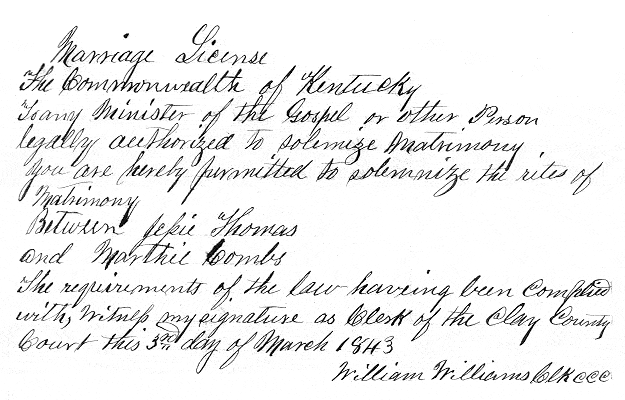 Marriage License
The Commonwealth of Kentucky
To any Minister of the Gospel or other Person
legally authorized to solemize Matrimony
You are hereby permitted to solemnize the rites of
Matrimony
Between Jessie Thomas
and Marthie Combs
The requirements of the law haveing been Complied
with, Witness my signature as Clerk of the Clay County
Court this 3rd day of March 1843
William Williams Clk CCC